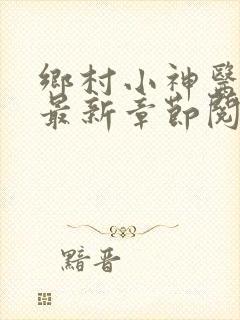 鄉村小神醫
最新章節閱
黯晋